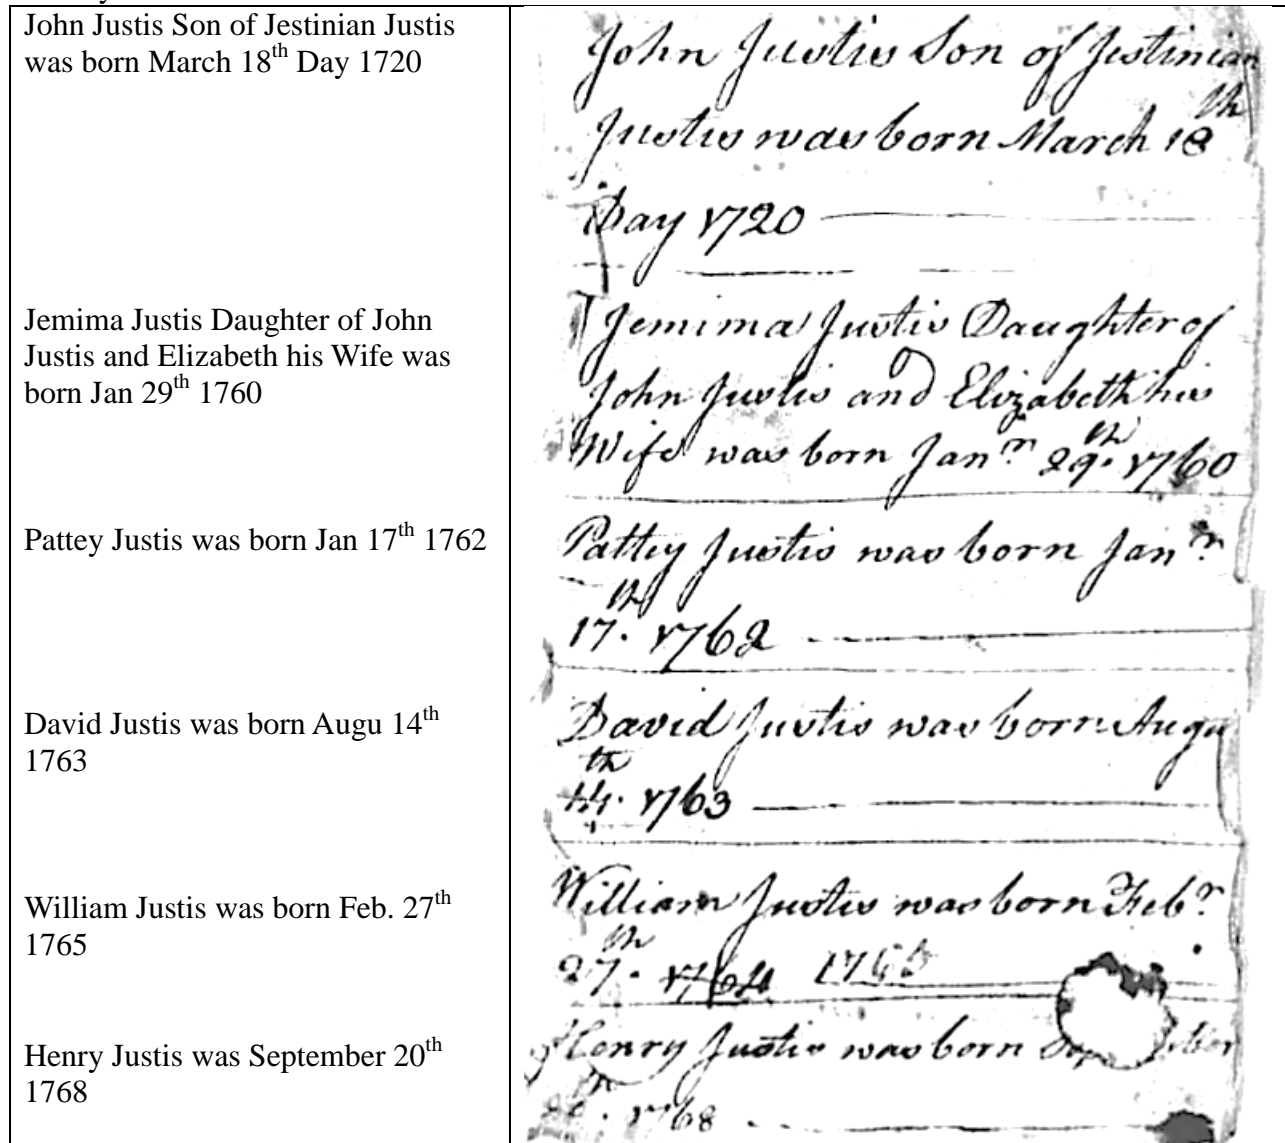 John Justis Son of Jestinian Justis
was born March 18th Day 1720
Jemima Justis Daughter of John
Justis and Elizabeth his Wife was
born Jan 29th 1760
Pattey Justis was born Jan 17th 1762
David Justis was born Augu 14th
1763
William Justis was born Feb. 27th
1765
Henry Justis was September 20th
1768
John Justis Son of Jestinian
Justis was born March 18th
Day 1720
Jemima Justis Daughter of
John Justis and Elizabeth his
Wife was born Janr 29th 1760
Pattey Justis was born Janr
17th 1762
David Justis was born Augu
14th 1763
William Justis was born Febr
27th 1764 1765
Henry Justis was born
1768